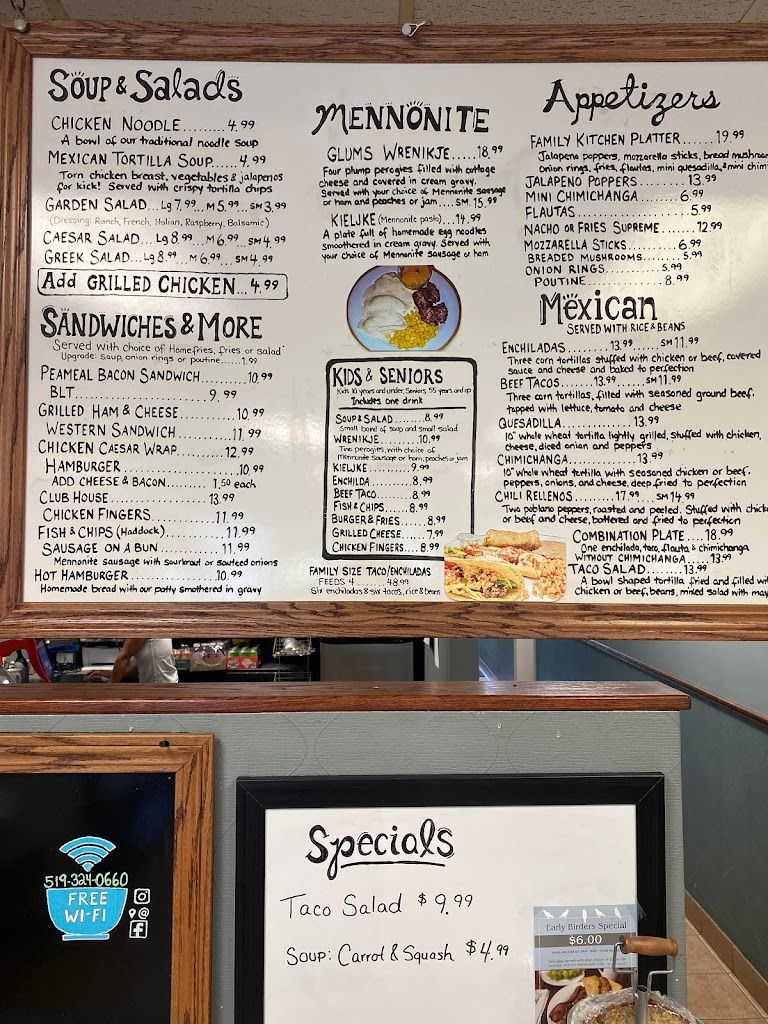 Soup & Salads
CHICKEN NOODLE........4.99
A bowl of our traditional noodle soup
MEXICAN TORTILLA SOUP.....4.99
Torn chicken breast, vegetables & jalapenos
for kick! Served with crispy tortilla chips
GARDEN SALAD...Lg 7.99...M 5.99...SM 3.99
(Dressing: Ranch, French, Italian, Raspberry, Balsamic)
CAESAR SALAD...Lg 8.99...M 6.99...SM 4.99
GREEK SALAD...Lg 8.99...M 6.99...SM 4.99
Add GRILLED CHICKEN...4.99
SANDWICHES & MORE
Served with choice of Homefries, fries or salad
Upgrade: soup, onion rings or poutine......1.99
PEAMEAL BACON SANDWICH.......10.99
BLT.................9.99
GRILLED HAM & CHEESE........10.99
WESTERN SANDWICH........11.99
CHICKEN CAESAR WRAP........12.99
HAMBURGER.............10.99
ADD CHEESE & BACON.......1.50 each
CLUB HOUSE..........13.99
CHICKEN FINGERS.........11.99
FISH & CHIPS (Haddock)........11.99
SAUSAGE ON A BUN........11.99
Mennonite sausage with sourkraut or sauteed onions
HOT HAMBURGER..........10.99
Homemade bread with our patty smothered in gravy
MENNONITE
GLUMS WRENIKJE.....18.99
Four plump perogies filled with cottage
cheese and covered in cream gravy.
Served with your choice of Mennonite sausage
or ham and peaches or jam....SM. 15.99
KIELJKE (Mennonite pasta)....14.99
A plate full of homemade egg noodles
smoothered in cream gravy. Served with
your choice of Mennonite sausage or ham
KIDS & SENIORS
Kids 10 years and under, Seniors 55 years and up
Includes one drink
SOUP & SALAD......8.99
Small bowl of soup and small salad
WRENIKJE.......10.99
Two perogies, with choice of
Mennonite Sausage or ham, peaches or jam
KIELJKE.......9.99
ENCHILDA.......8.99
BEEF TACO.......8.99
FISH & CHIPS.......8.99
BURGER & FRIES......8.99
GRILLED CHEESE......7.99
CHICKEN FINGERS....8.99
FAMILY SIZE TACO/ENCHILADAS
FEEDS 4........48.99
Six enchiladas & six tacos, rice & beans
Appetizers
FAMILY KITCHEN PLATTER......19.99
Jalapeno poppers, mozzarella sticks, bread
onion rings, fries, flautas, mini quesadilla, & mini
JALAPENO POPPERS......13.99
MINI CHIMICHANGA.......6.99
FLAUTAS..............5.99
NACHO OR FRIES SUPREME.......12.99
MOZZARELLA STICKS........6.99
BREADED MUSHROOMS......5.99
ONION RINGS.......5.99
POUTINE..........8.99
Mexican
SERVED WITH RICE & BEANS
ENCHILADAS.........13.99......SM 11.99
Three corn tortillas stuffed with chicken or beef, covered
sauce and cheese and baked to perfection
BEEF TACOS.......13.99......SM 11.99
Three corn tortillas, filled with seasoned ground beef.
topped with lettuce, tomato and cheese
QUESADILLA.........13.99
10" whole wheat tortilla lightly grilled, stuffed with chicken,
cheese, diced onion and peppers
CHIMICHANGA.........13.99
10" whole wheat tortilla with seasoned chicken or beef.
peppers, onions, and cheese, deep fried to perfection
CHILI RELLENOS......17.99....SM 14.99
Two poblano peppers, roasted and peeled. Stuffed with
or beef and cheese, battered and fried to perfection
COMBINATION PLATE....18.99
One enchilada, taco, flauta & chimichanga
WITHOUT CHIMICHANGA......13.99
TACO SALAD........13.99
A bowl shaped tortilla fried and filled
Chicken or beef, beans, mixed salad with
Specials
Taco Salad $9.99
SOUP: Carrot & Squash $4.99
Early Birders Special
$6.00
519-324-0660
FREE
WI-FI